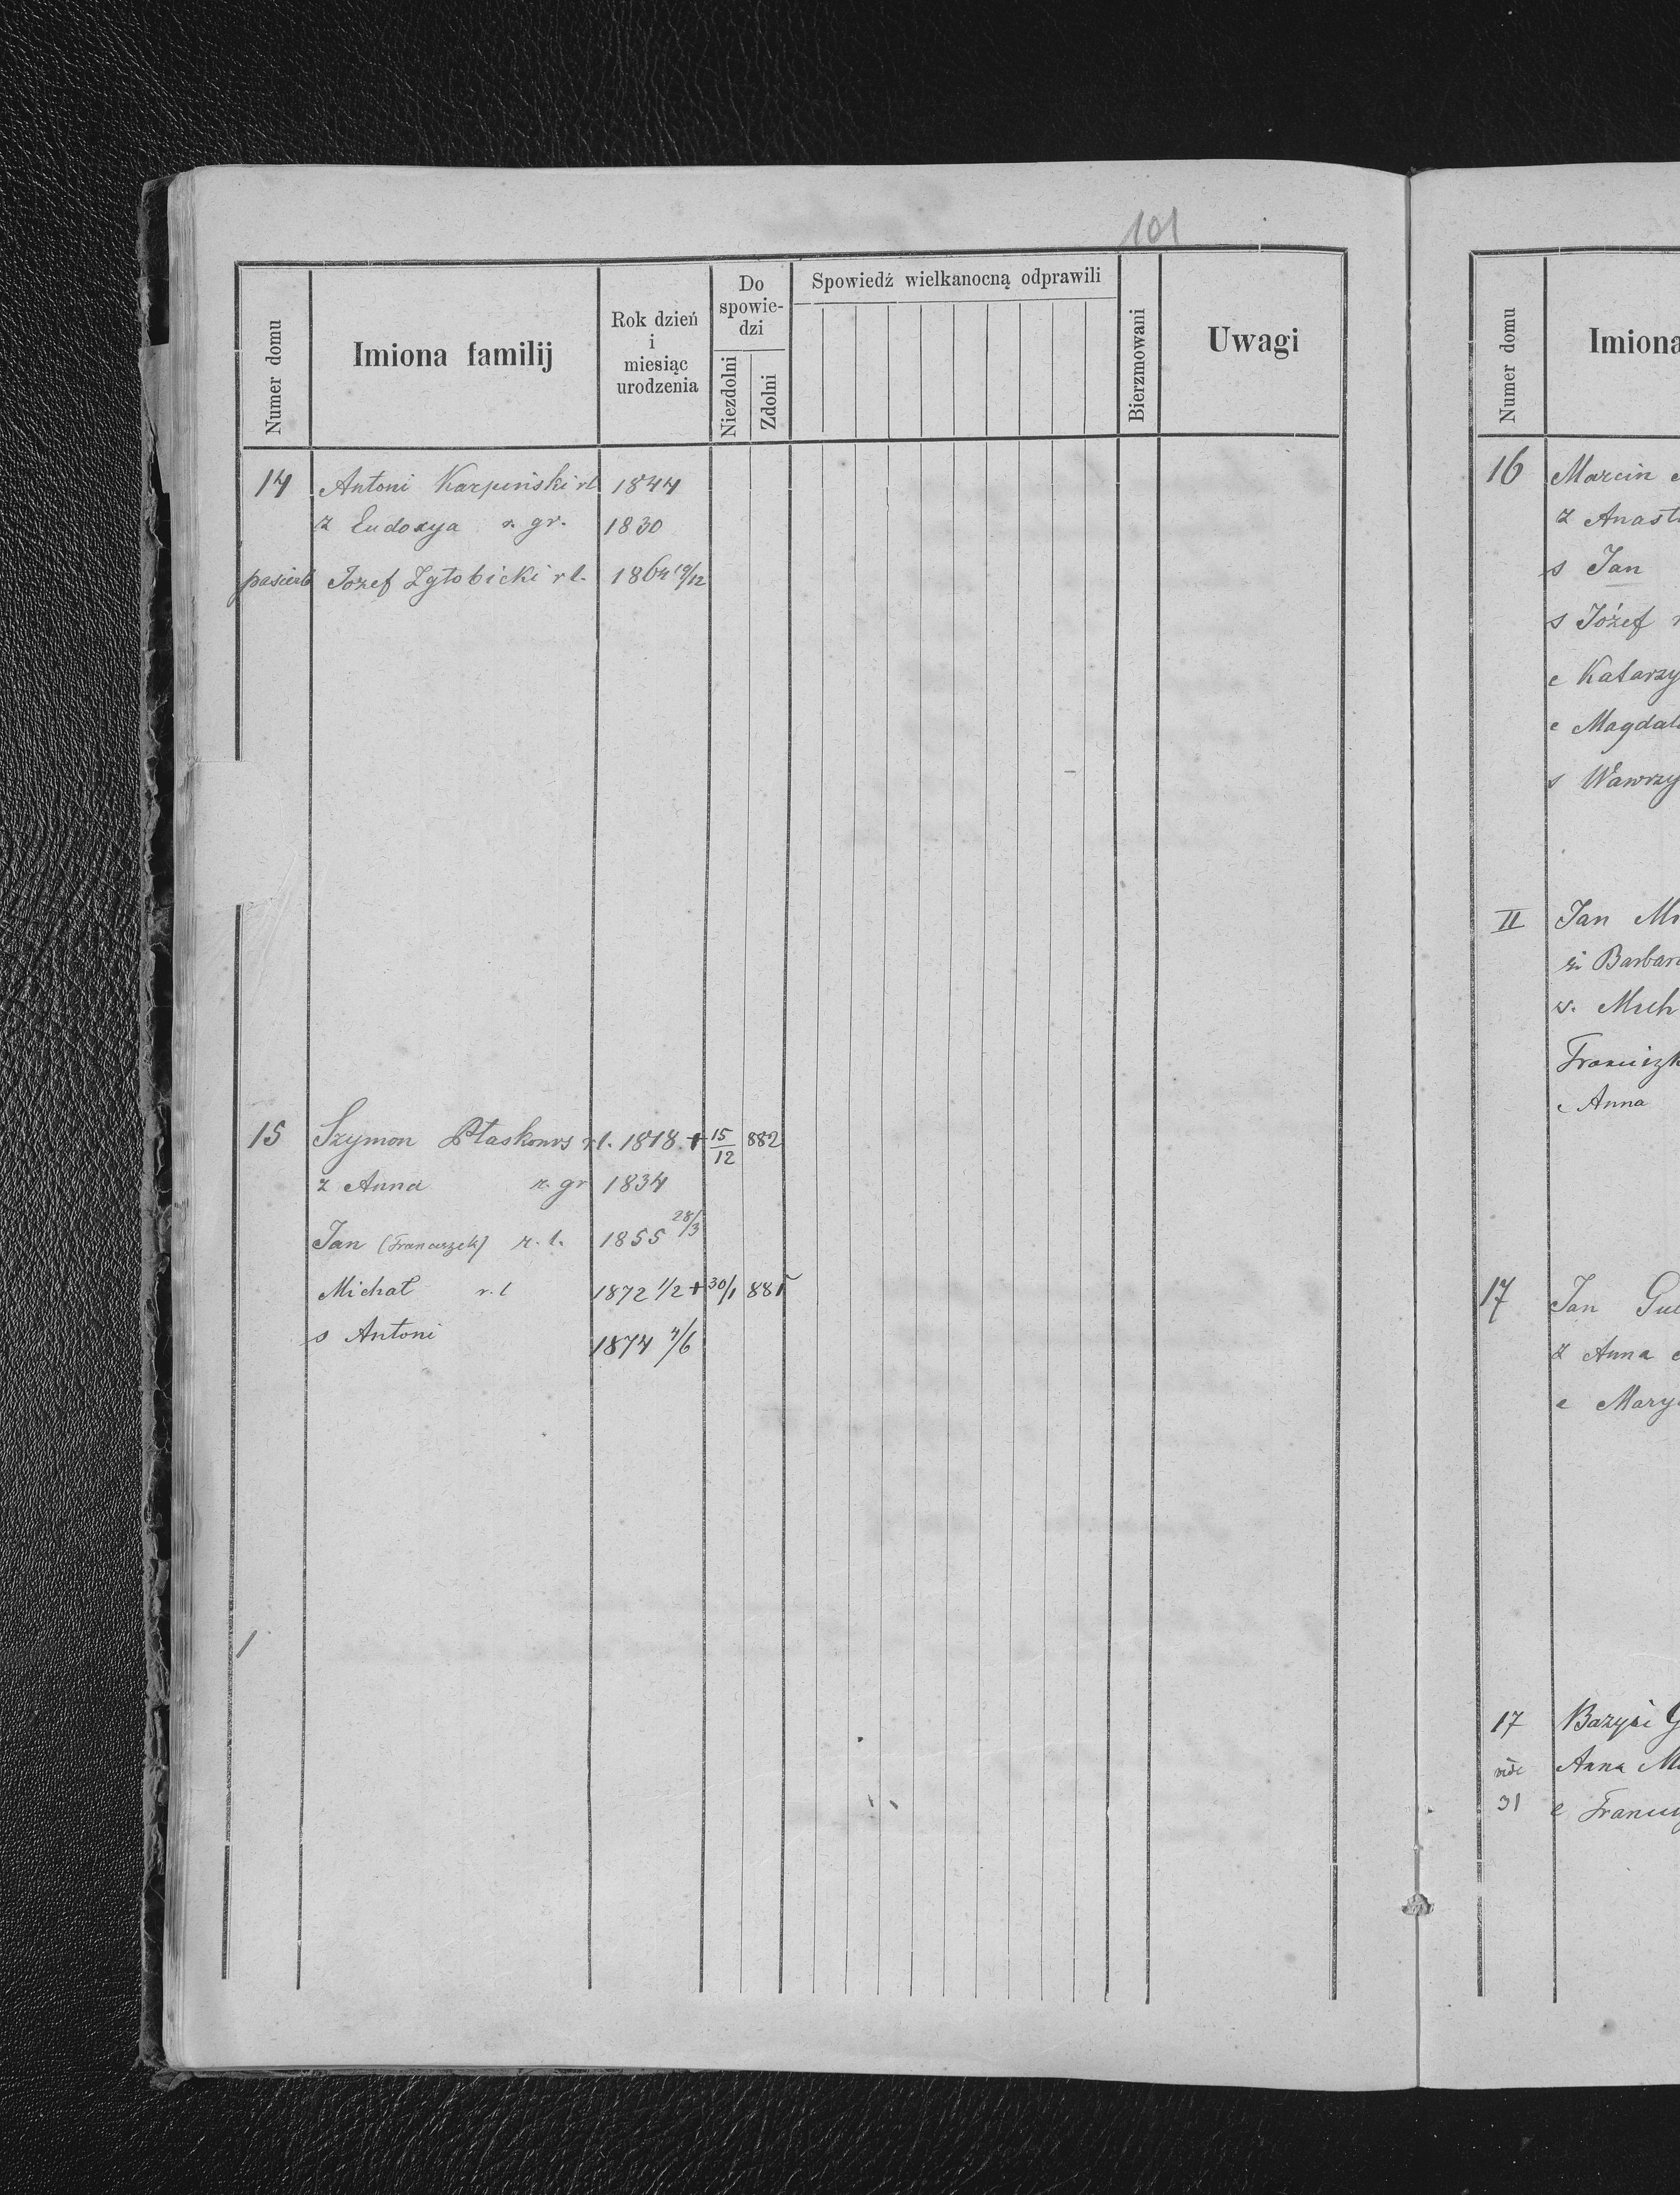 101
Numer domu
Imiona familij
Rok dzień
i
miesiąc
urodzenia
Do
spowie-
dzi
Niezdolni
Zdolni
Spowiedź wielkanocną odprawili
Bierzmowani
Uwagi
14 Antoni Karpiński rl 1844
z Eudoxya r. gr. 1830
pasierb Józef Zgłobicki r l. 1864 19/12
15 Szymon Płaskonos r l. 1818 + 15/12 882
z Anna r. gr 1834
Jan (Franciszek) r. l. 1855 28/3
Michał r. l 1872 1/2 + 30/1 881
s Antoni 1874 4/6
Numer domu
Imiona
16 Marcin
z Anast
s Jan
s Józef
c Katarzy
c Magdal
s Wawrzy
II Jan
Barbar
Franciszk
c Anna
17 Jan Gu
z Anna
c Mary
17
vide Anna M
31 c Franci